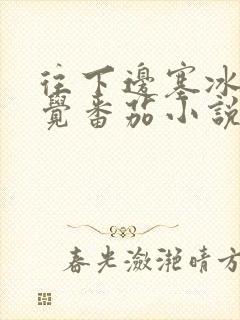 往下邊塞冰
覺番茄小說
春光瀲灧晴方